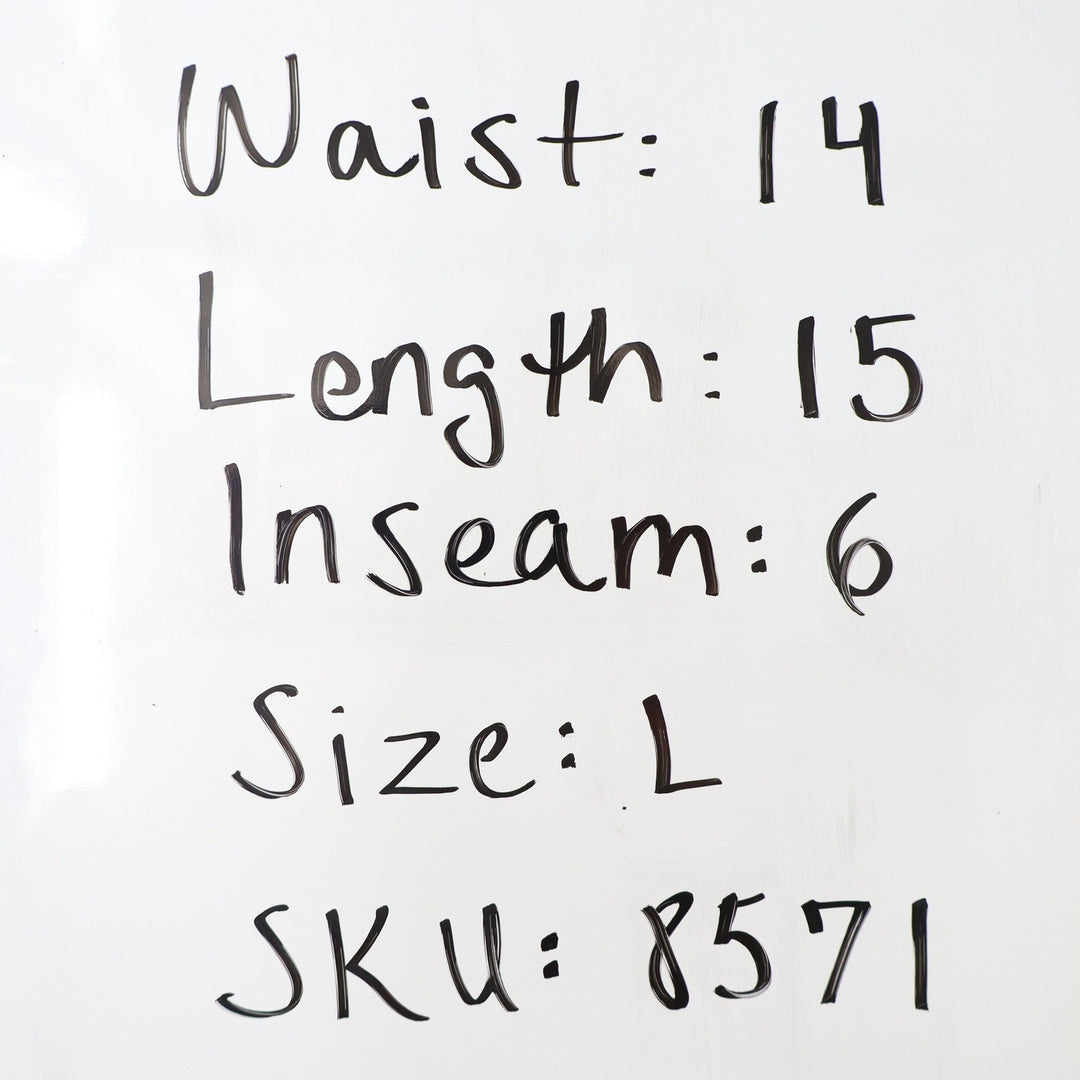 Waist: 14
Length: 15
Inseam: 6
Size: L
SKU: 8571